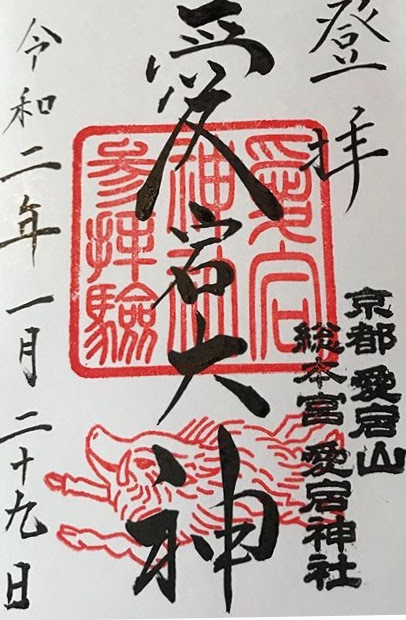 登拝
京都 愛宕山
総本宮 愛宕神社
愛宕大神
愛宕
神社
参拝驗
令和二年一月二十九日